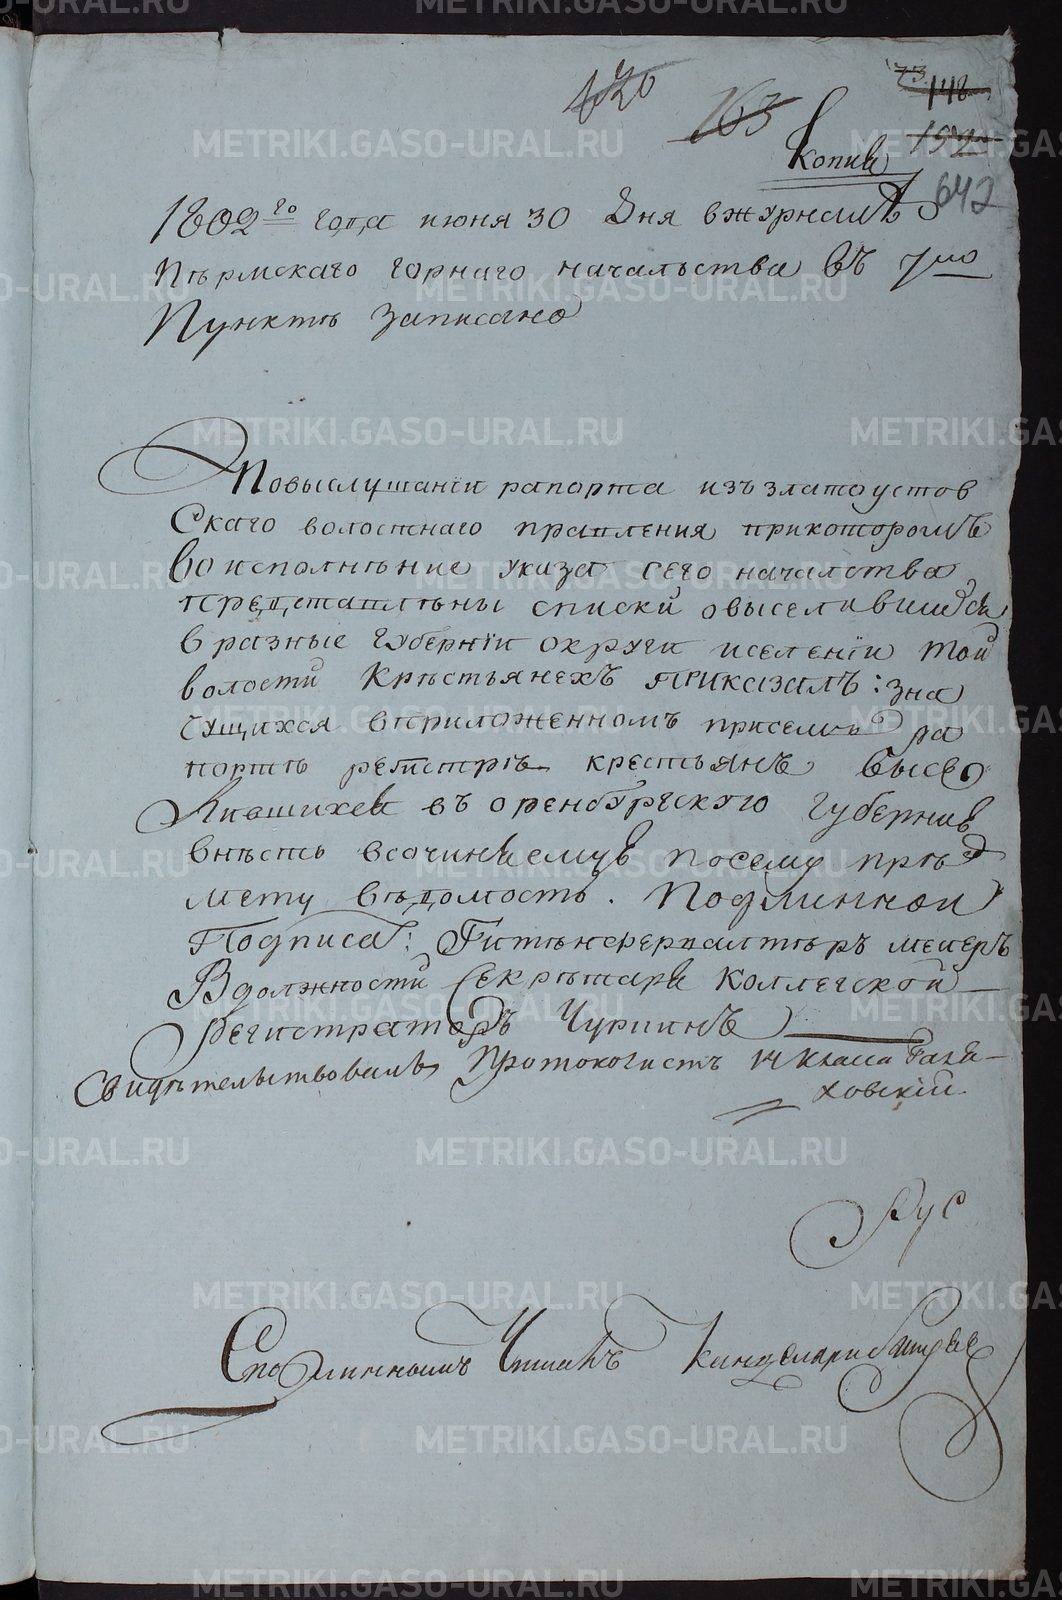 120
163
73
148
152
642
Копия
1802го года июня 30 дня вжурналѣ
Пермскаго горнаго начальства въ 7мо
Пунктѣ записано
Повыслушанїи рапорта изъ златоустов
Скаго волостнаго правления прикоторомъ
Воисполнѣние указа сего началства
представлѣны списки овыселившихся
вразные губернїи округи иселенїи той
волости Крѣстьянехъ приказалъ: зна
сущихся вприложенномъ присемъ ра
портѣ регистрѣ крестьянъ высе
лившихся въ оренбургскую губернию
внѣсть всочиняемую посему прѣд
мету вѣдомость. Подлинной
Подписалъ: Гитѣнфервалтѣръ меиеръ
Вдолжности Секрѣтаря коллегской
Регистраторъ Чуринъ
Свидѣтельствовалъ Протоколистъ 14 класа
ховскїй
Рус
Сподлиннымъ Читалъ Канцеляристъ
METRIKI.GASO-URAL.RU